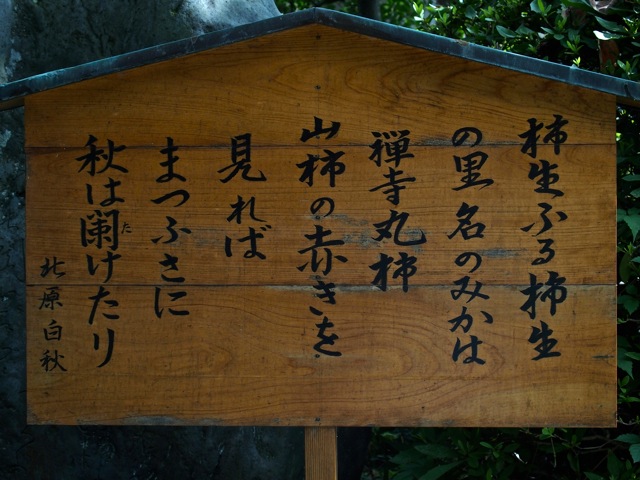 柿生ふる柿生
の里名のみかは
禅寺丸柿
山柿の赤きを
見れば
まつぶさに
秋は闌けたり
た
北原白秋